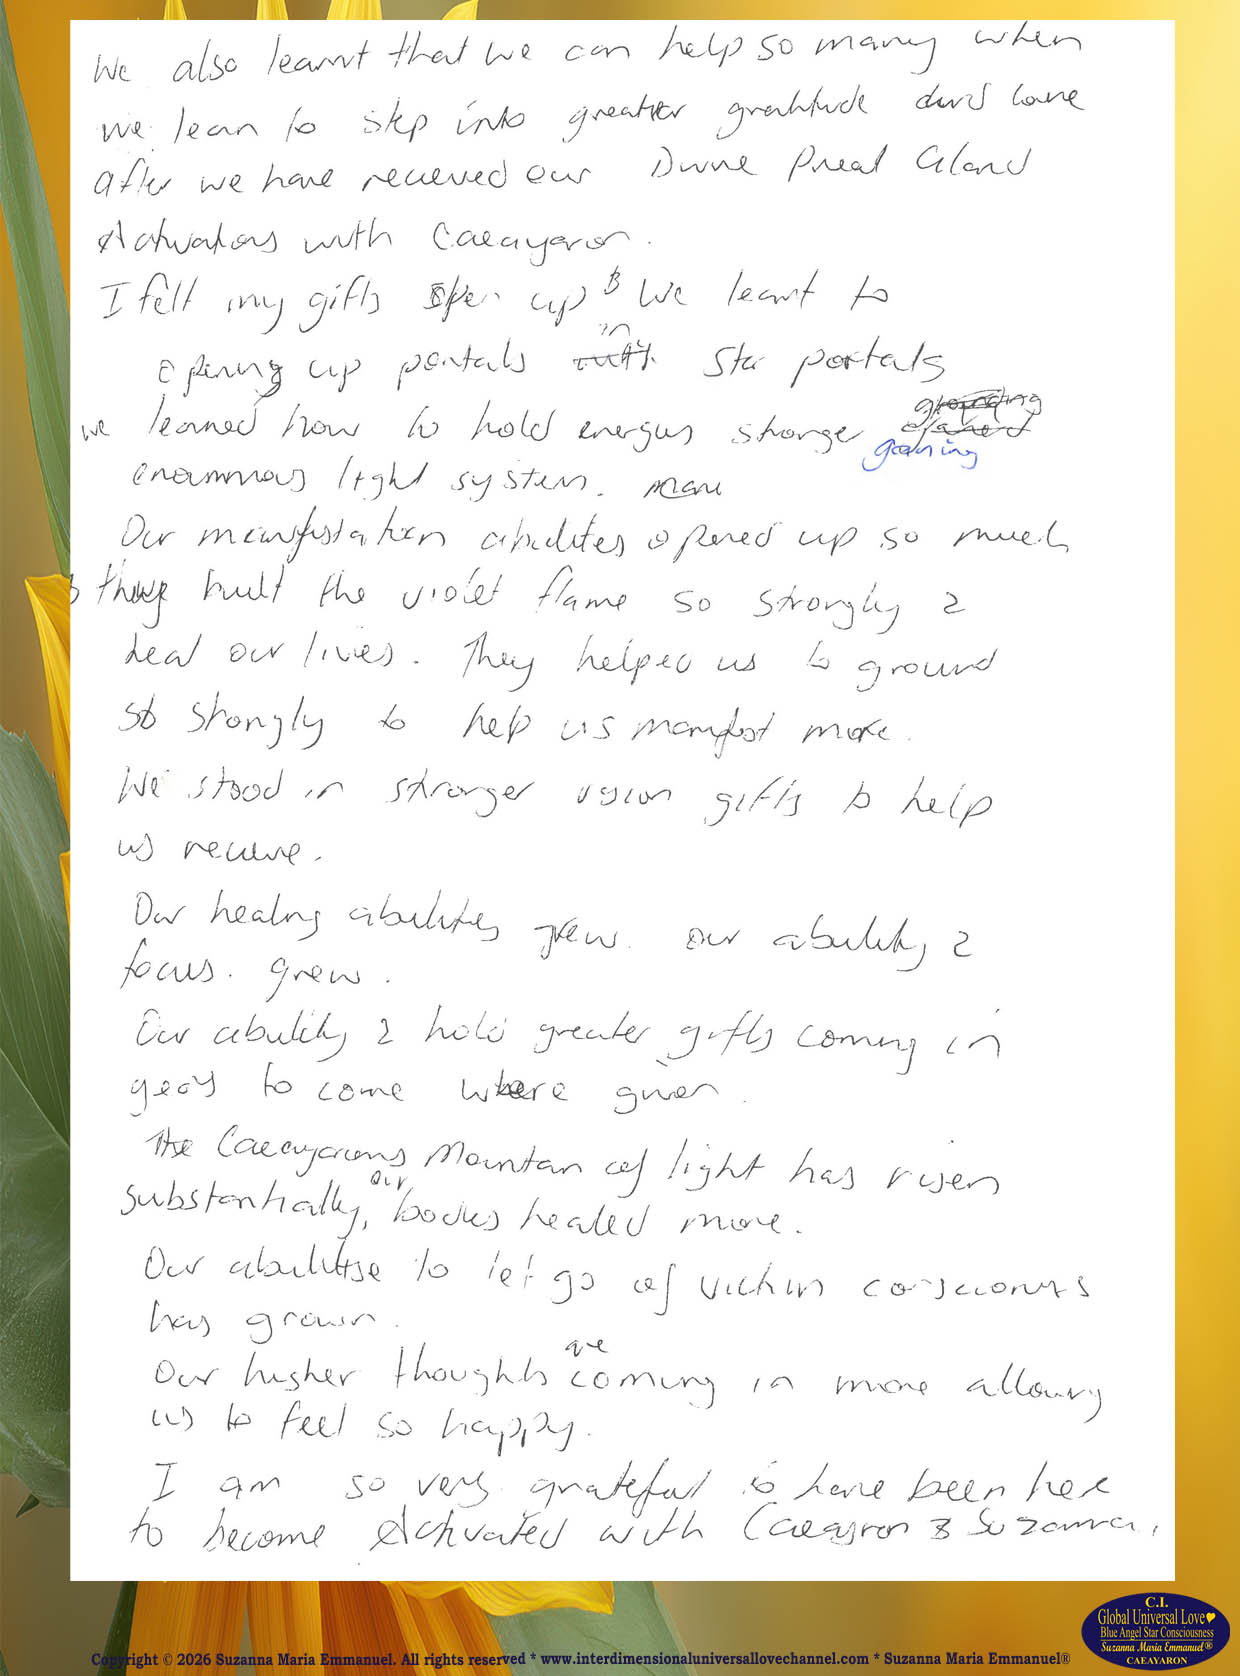 We also learnt that we can help so many when
we learn to step into greater gratitude and love
after we have recieved our Divine Pineal Gland
Activations with Caeayaron.
I felt my gifts open up & We learnt to
opening up portals in Star portals
we learned how to hold energies stronger grounding
gaining
enormous light system.
Our manifestation abilities opened up so much
& they built the violet flame so strongly 2
heal our lives. They helped us to ground
so strongly to help us manifest more.
We stood in stronger vision gifts to help
us receive.
Our healing abilities grew. our ability 2
focus. grew.
Our ability 2 hold greater gifts coming in
years to come where given.
The Caeayarons Mountain of light has risen
substantially, our bodies healed more.
Our abilitise to let go of victim consciouness
has grown.
Our higher thoughts are coming in more allowing
us to feel so happy.
I am so very grateful to have been here
to become Activated with Caeayaron & Suzanna.
C.I.
Global Universal Love
Blue Angel Star Consciousness
Suzanna Maria Emmanuel®
CAEAYARON
Copyright © 2026 Suzanna Maria Emmanuel. All rights reserved * www.interdimensionaluniversallovechannel.com * Suzanna Maria Emmanuel®